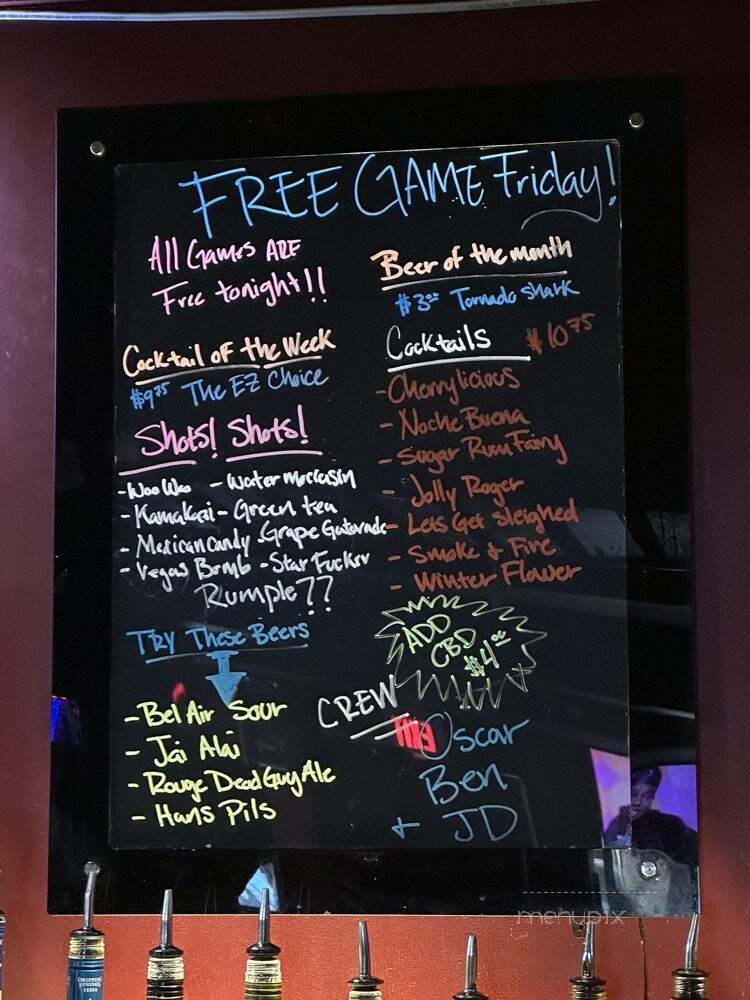 FREE GAME Friday!
All Games ARE
Free tonight!!
Cocktail of the Week
$9.75 The EZ Choice
Shots! Shots!
-Woo Woo - Water moccasin
- Kamakazi - Green tea
- Mexican Candy - Grape Gatorade
- Vegas Bomb - Star Fucker
Rumple??
Try These Beers
- Bel Air Sour
- Jai Alai
- Rouge Dead Guy Ale
- Hans Pils
Beer of the month
$3.00 Tornado Shark
Cocktails $10.75
- Cherrylicious
- Noche Buena
- Sugar Rum Fairy
- Jolly Roger
- Lets Get Sleighed
- Smoke & Fire
- Winter Flower
ADD
CBD
$4.00
CREW
Oscar
Ben
+ JD
DRIPPING
SPRINGS
VODKA
menupix